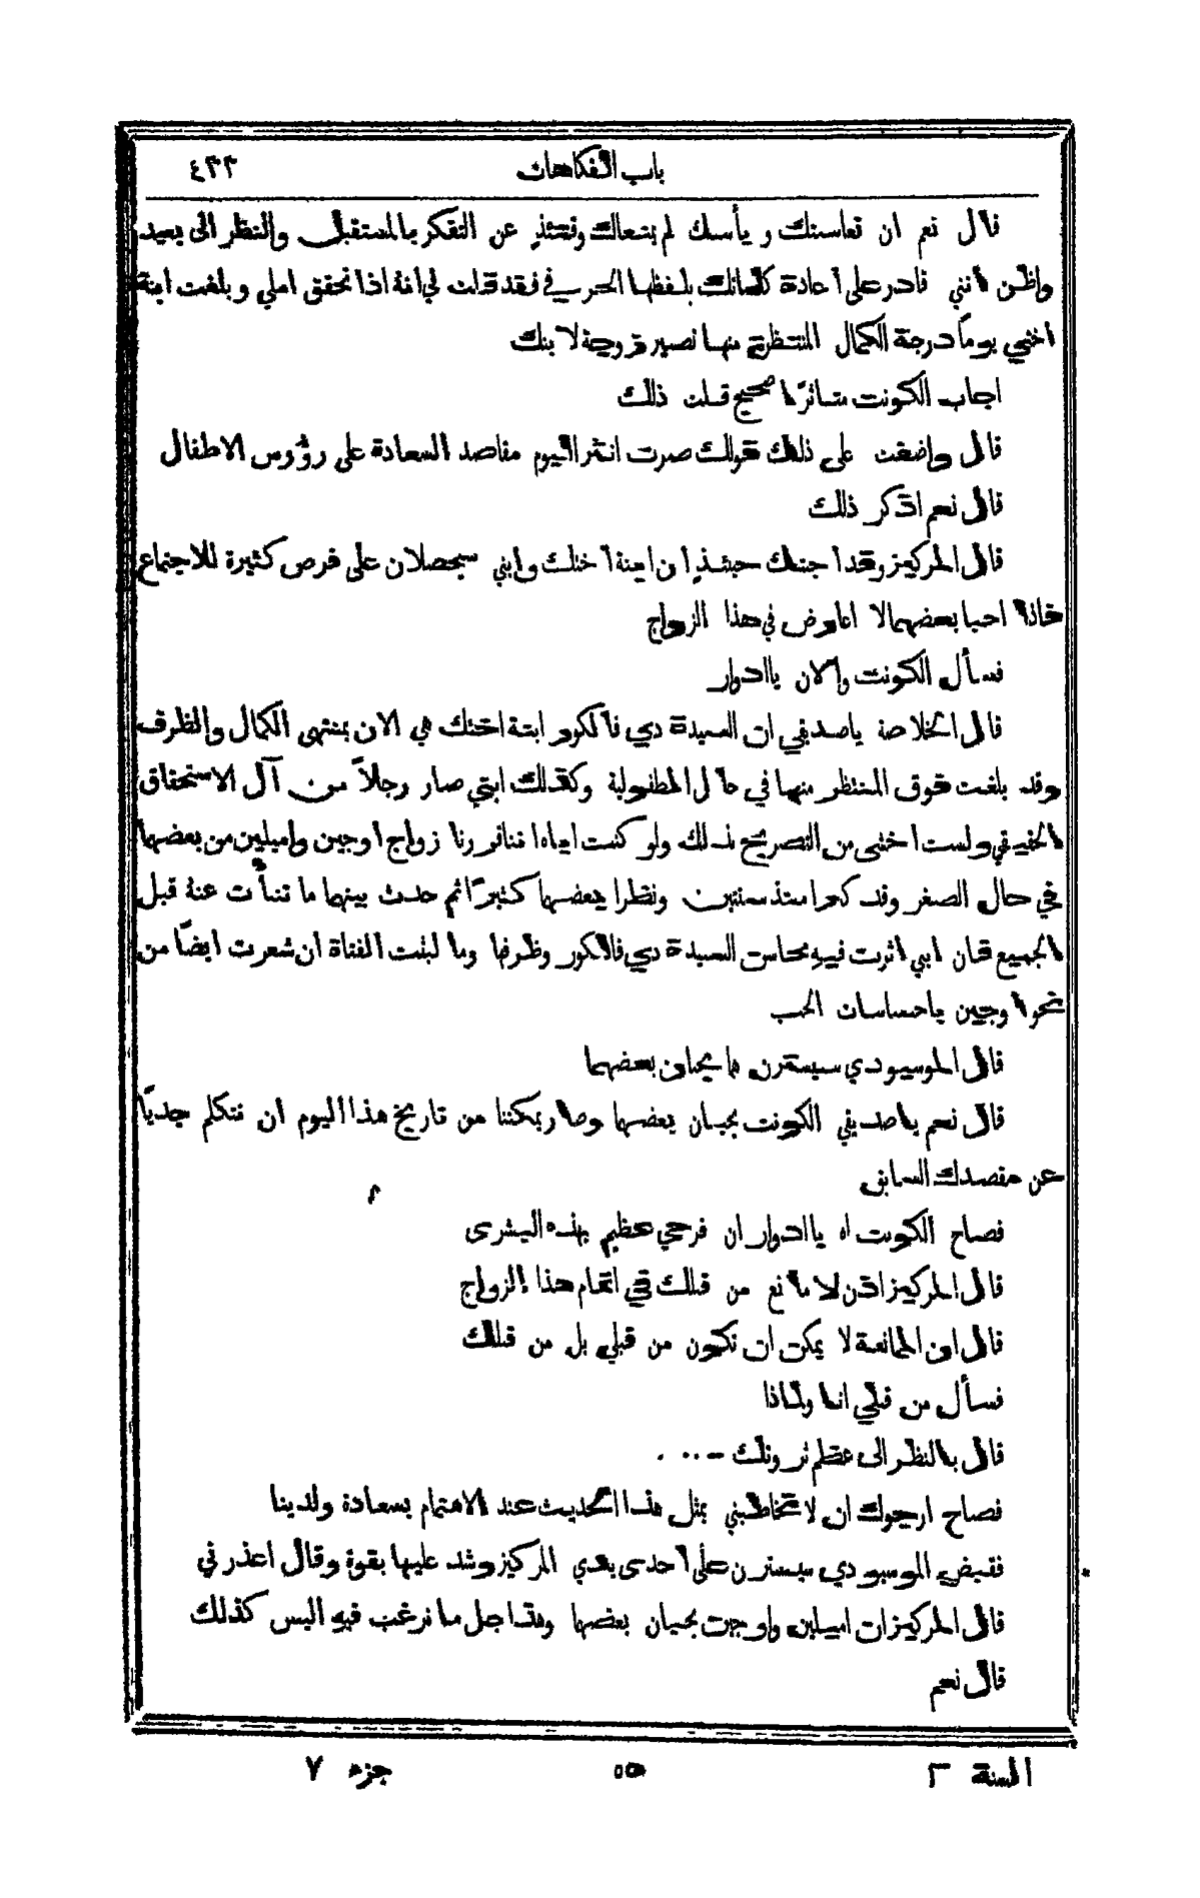 باب الفكاهات ٤٣٣
قال نعم ان تعاستك ويأسك لم يمنعاك وقتئذٍ عن التفكر بالمستقبل والنظر الى بعيد
واظن انني قادر على اعادة كلماتك بلفظها الحرفي فقد قلت لي انه اذا تحقق املي وبلغت ابنة
اختي يوماً درجة الكمال المنتظرة منها تصير زوجة لابنك
اجاب الكونت متاثرًا صحيح قلت ذلك
قال واضفت على ذلك قولك صرت انثر اليوم مقاصد السعادة على رؤوس الاطفال
قال نعم اذكر ذلك
قال المركيز وقد اجبتك حينئذٍ ان ابنة اختك وابني سيحصلان على فرص كثيرة للاجتماع
فاذا احبا بعضهما لا اعارض في هذا الزواج
فسأل الكونت والان يا ادوار
قال الخلاصة ياصديقي ان السيدة دي فالكور ابنة اختك هي الان بمنتهى الكمال والظرف
وقد بلغت فوق المنتظر منها في حال الطفولية وكذلك ابني صار رجلاً من آل الاستحقاق
الحقيقي ولست اخشى من التصريح بذلك ولو كنت اياه اننا قررنا زواج اوجين واميلين من بعضهما
في حال الصغر وقد كبرا منذ سنتين ونظرا بعضهما كثيرًا ثم حدث بينهما ما تنبأت عنه قبل
الجميع فان ابني اثرت فيه محاسن السيدة دي فالكور وظرفها وما لبثت الفتاة ان شعرت ايضًا من
نحو اوجين باحساسات الحب
قال الموسيو دي سيسترن هما يحبان بعضهما
قال نعم ياصديقي الكونت يحبان بعضهما وصار يمكننا من تاريخ هذا اليوم ان نتكلم جديًا
عن مقصدك السابق
فصاح الكونت اه يا ادوار ان فرحي عظيم بهذه البشرى
قال المركيز اذن لا مانع من قبلك في اتمام هذا الزواج
قال ان الممانعة لا يمكن ان تكون من قبلي بل من قبلك
فسأل من قبلي انا ولماذا
قال بالنظر الى عظم ثروتك – . . .
فصاح ارجوك ان لا تخاطبني بمثل هذا الحديث عند الاهتمام بسعادة ولدينا
فقبض الموسيو دي سيسترن على احدى يدي المركيز وشد عليها بقوة وقال اعذرني
قال المركيز ان اميلين واوجين يحبان بعضهما وهذا جل ما نرغب فيه اليس كذلك
قال نعم
السنة ٣ ٥٥ جزء ٧